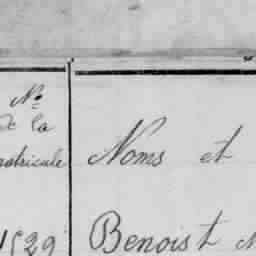 No
de la
matricule
Noms et
1529
Benoist